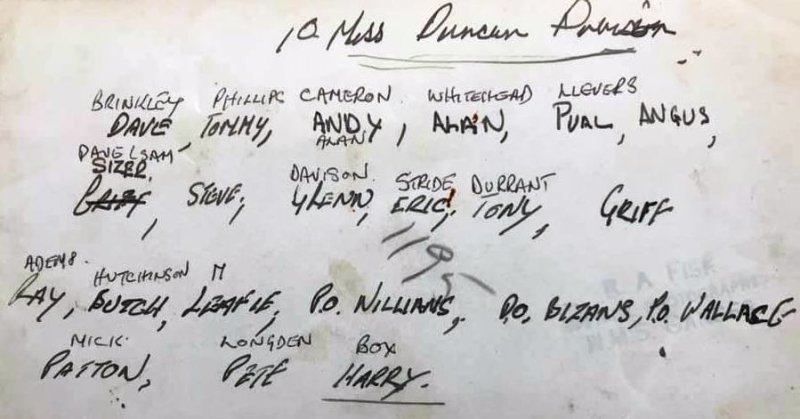 10 Mess Duncan Division
BRINKLEY PHILLIPS CAMERON. WHITEHEAD LLEVERS
DAVE, TOMMY, ANDY, ALAIN, PUAL, ANGUS,
ALAN
DAVE L SAM
SIZER, DAVISON. STRIDE DURRANT
GRIFF, STEVE, GLENN, ERIC, TONY, GRIFF
1195
ADEMS. HUTCHINSON M
RAY, BUTCH, LEAFIE, P.O. NILLIANS, P.O. BIZANS, P.O. WALLACE
R A FISK
MICK. LONGDEN BOX
PATTON, PETE HARRY.